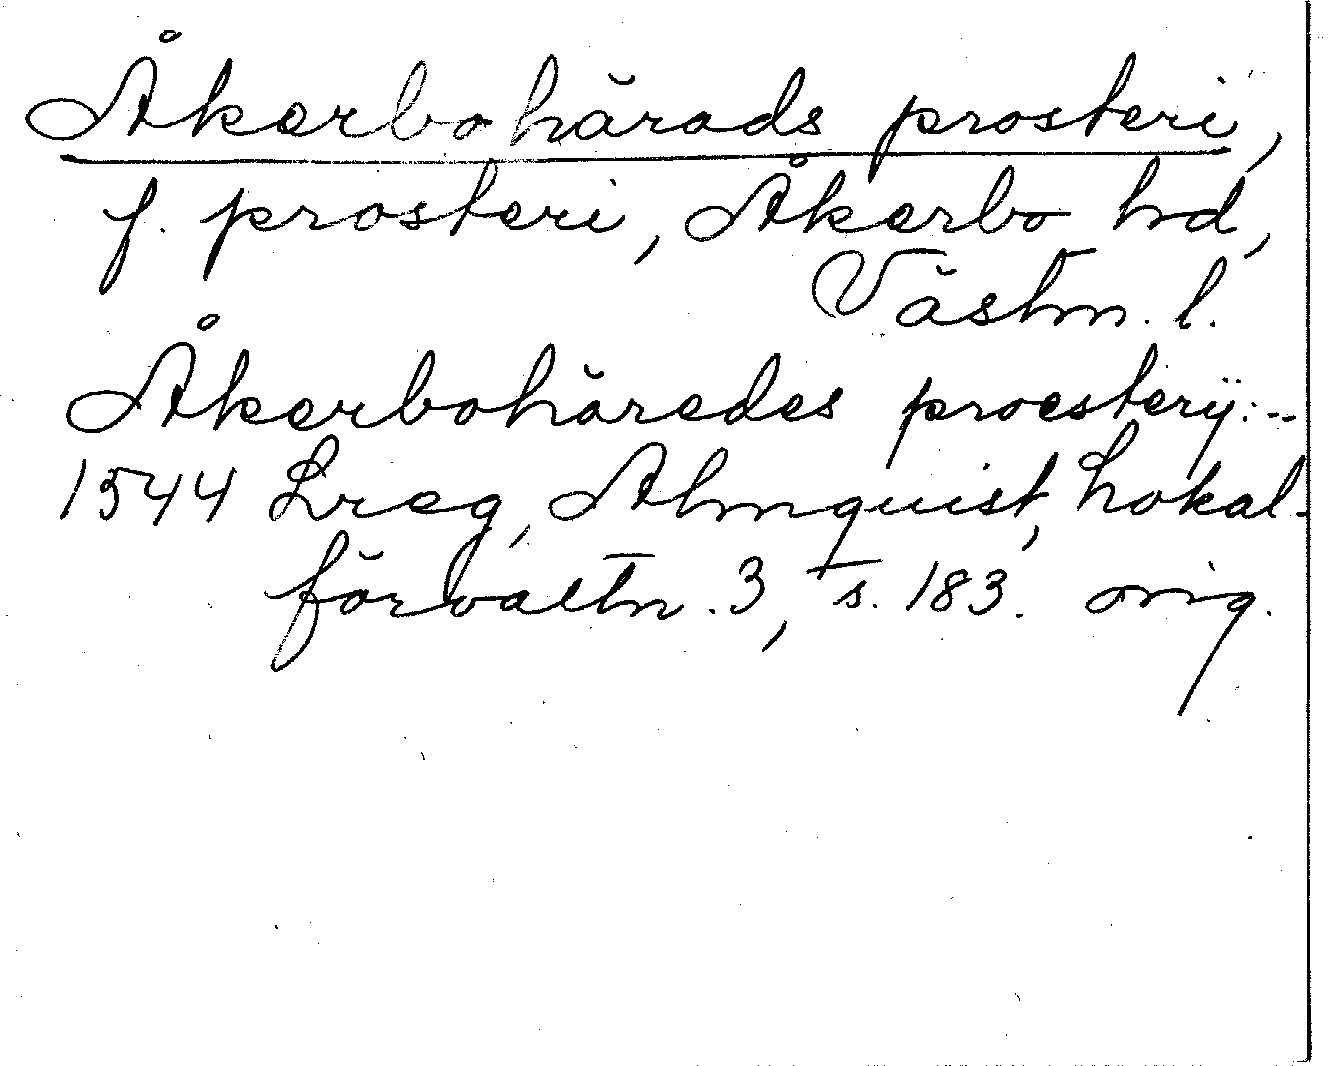 Åkerbohärads prosteri,
f. prosteri, Åkerbo hd,
Västm. l.
Åkerbohäredes proesterÿ: --
1544 Lreg, Almquist, Lokal-
förvaltn. 3, s. 183. orig.